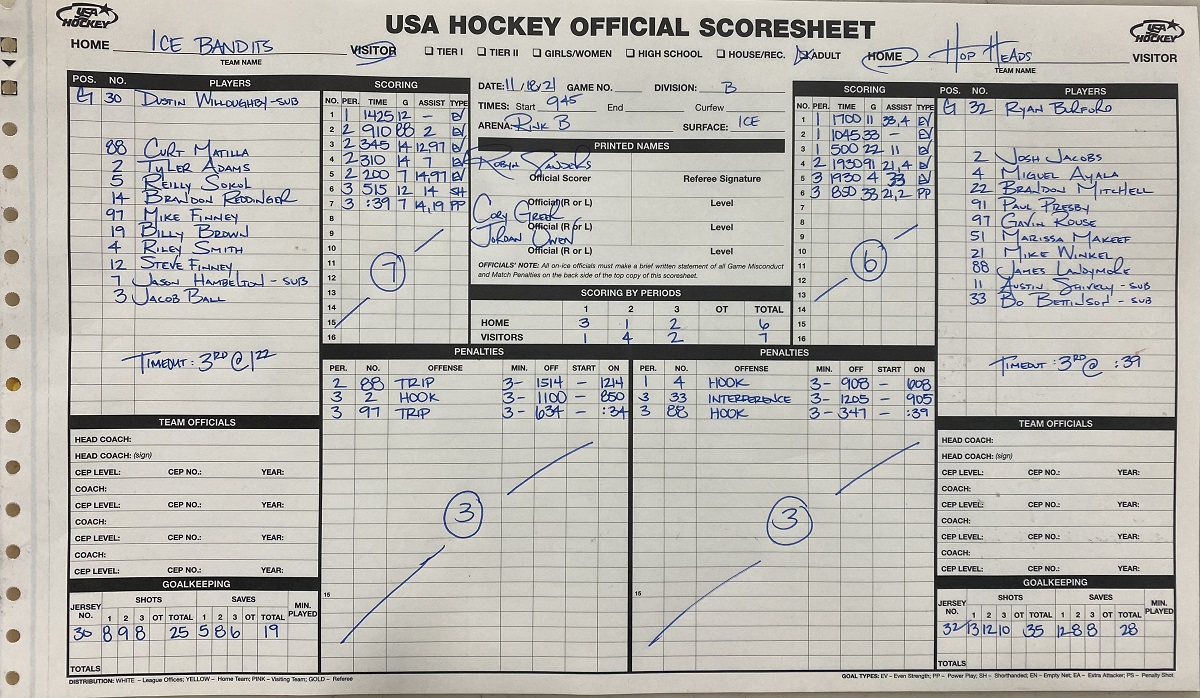 USA HOCKEY
USA HOCKEY OFFICIAL SCORESHEET
USA HOCKEY
HOME ICE BANDITS VISITOR
TEAM NAME
TIER I TIER II GIRLS/WOMEN HIGH SCHOOL HOUSE/REC. ADULT
HOME HOP HEADS VISITOR
TEAM NAME
POS. NO. PLAYERS
G 30 DUSTIN WILLOUGHBY-SUB
88 CURT MATILLA
2 TYLER ADAMS
5 REILLY SOKOL
14 BRANDON REDDINGER
97 MIKE FINNEY
19 BILLY BROWN
4 RILEY SMITH
12 STEVE FINNEY
7 JASON HAMBELTON - SUB
3 JACOB BALL
TIMEOUT: 3RD @ 1 22
SCORING
NO. PER. TIME G ASSIST TYPE
1 1 1425 12 - EV
2 2 910 88 2 EV
3 2 345 14 12,97 EV
4 2 310 14 7 EV
5 2 200 7 14,97 EV
6 3 515 12 14 SH
7 3 :39 7 14,19 PP
8
9
10
11
12
13
14
15
16
7
DATE: 11/18/21 GAME NO. DIVISION: B
TIMES: Start 945 End Curfew
ARENA: RINK B SURFACE: ICE
PRINTED NAMES
ROBYN SANDERS
Official Scorer Referee Signature
Official(R or L) Level
CORY GREER
Official (R or L) Level
JORDAN OWEN
Official (R or L) Level
OFFICIALS' NOTE: All on-ice officials must make a brief written statement of all Game Misconduct
and Match Penalties on the back side of the top copy of this scoresheet.
SCORING BY PERIODS
1 2 3 OT TOTAL
HOME 3 1 2 6
VISITORS 1 4 2 7
SCORING
NO. PER. TIME G ASSIST TYPE
1 1 1700 11 33,4 EV
2 1 1045 33 - EV
3 1 500 22 11 EV
4 2 1930 91 21,4 EV
5 3 1930 4 33 EV
6 3 850 33 21,2 PP
7
8
9
10
11
12
13
14
15
16
6
POS. NO. PLAYERS
G 32 RYAN BURFORD
2 JOSH JACOBS
4 MIGUEL AYALA
22 BRANDON MITCHELL
91 PAUL PRESBY
97 GAVIN ROUSE
51 MARISSA MAKEEF
21 MIKE WINKEL
88 JAMES LADYMORE
11 AUSTIN SHIVELY - SUB
33 BO BETTINSON - SUB
TIMEOUT: 3RD @ :39
PENALTIES
PER. NO. OFFENSE MIN. OFF START ON
2 88 TRIP 3- 1514 - 1214
3 2 HOOK 3- 1100 - 850
3 97 TRIP 3- 634 - :34
3
15
PENALTIES
PER. NO. OFFENSE MIN. OFF START ON
1 4 HOOK 3- 908 - 608
3 33 INTERFERENCE 3- 1205 - 905
3 88 HOOK 3- 347 - :39
3
15
TEAM OFFICIALS
HEAD COACH:
HEAD COACH: (sign)
CEP LEVEL: CEP NO.: YEAR:
COACH:
CEP LEVEL: CEP NO.: YEAR:
COACH:
CEP LEVEL: CEP NO.: YEAR:
COACH:
CEP LEVEL: CEP NO.: YEAR:
GOALKEEPING
JERSEY NO. SHOTS SAVES MIN. PLAYED
1 2 3 OT TOTAL 1 2 3 OT TOTAL
30 8 9 8 25 5 8 6 19
TOTALS
TEAM OFFICIALS
HEAD COACH:
HEAD COACH: (sign)
CEP LEVEL: CEP NO.: YEAR:
COACH:
CEP LEVEL: CEP NO.: YEAR:
COACH:
CEP LEVEL: CEP NO.: YEAR:
COACH:
CEP LEVEL: CEP NO.: YEAR:
GOALKEEPING
JERSEY NO. SHOTS SAVES MIN. PLAYED
1 2 3 OT TOTAL 1 2 3 OT TOTAL
32 13 12 10 35 12 8 8 28
TOTALS
DISTRIBUTION: WHITE – League Offices; YELLOW – Home Team; PINK – Visiting Team; GOLD – Referee
GOAL TYPES: EV – Even Strength; PP – Power Play; SH – Shorthanded; EN – Empty Net; EA – Extra Attacker; PS – Penalty Shot